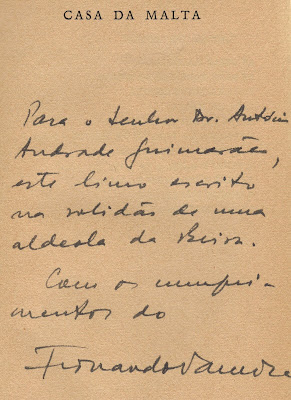 CASA DA MALTA
Para o Senhor Dr. António
Andrade Guimarães,
este livro escrito
na solidão de uma
aldeola da Beira.
Com os cumpri-
mentos do
Fernando Namora